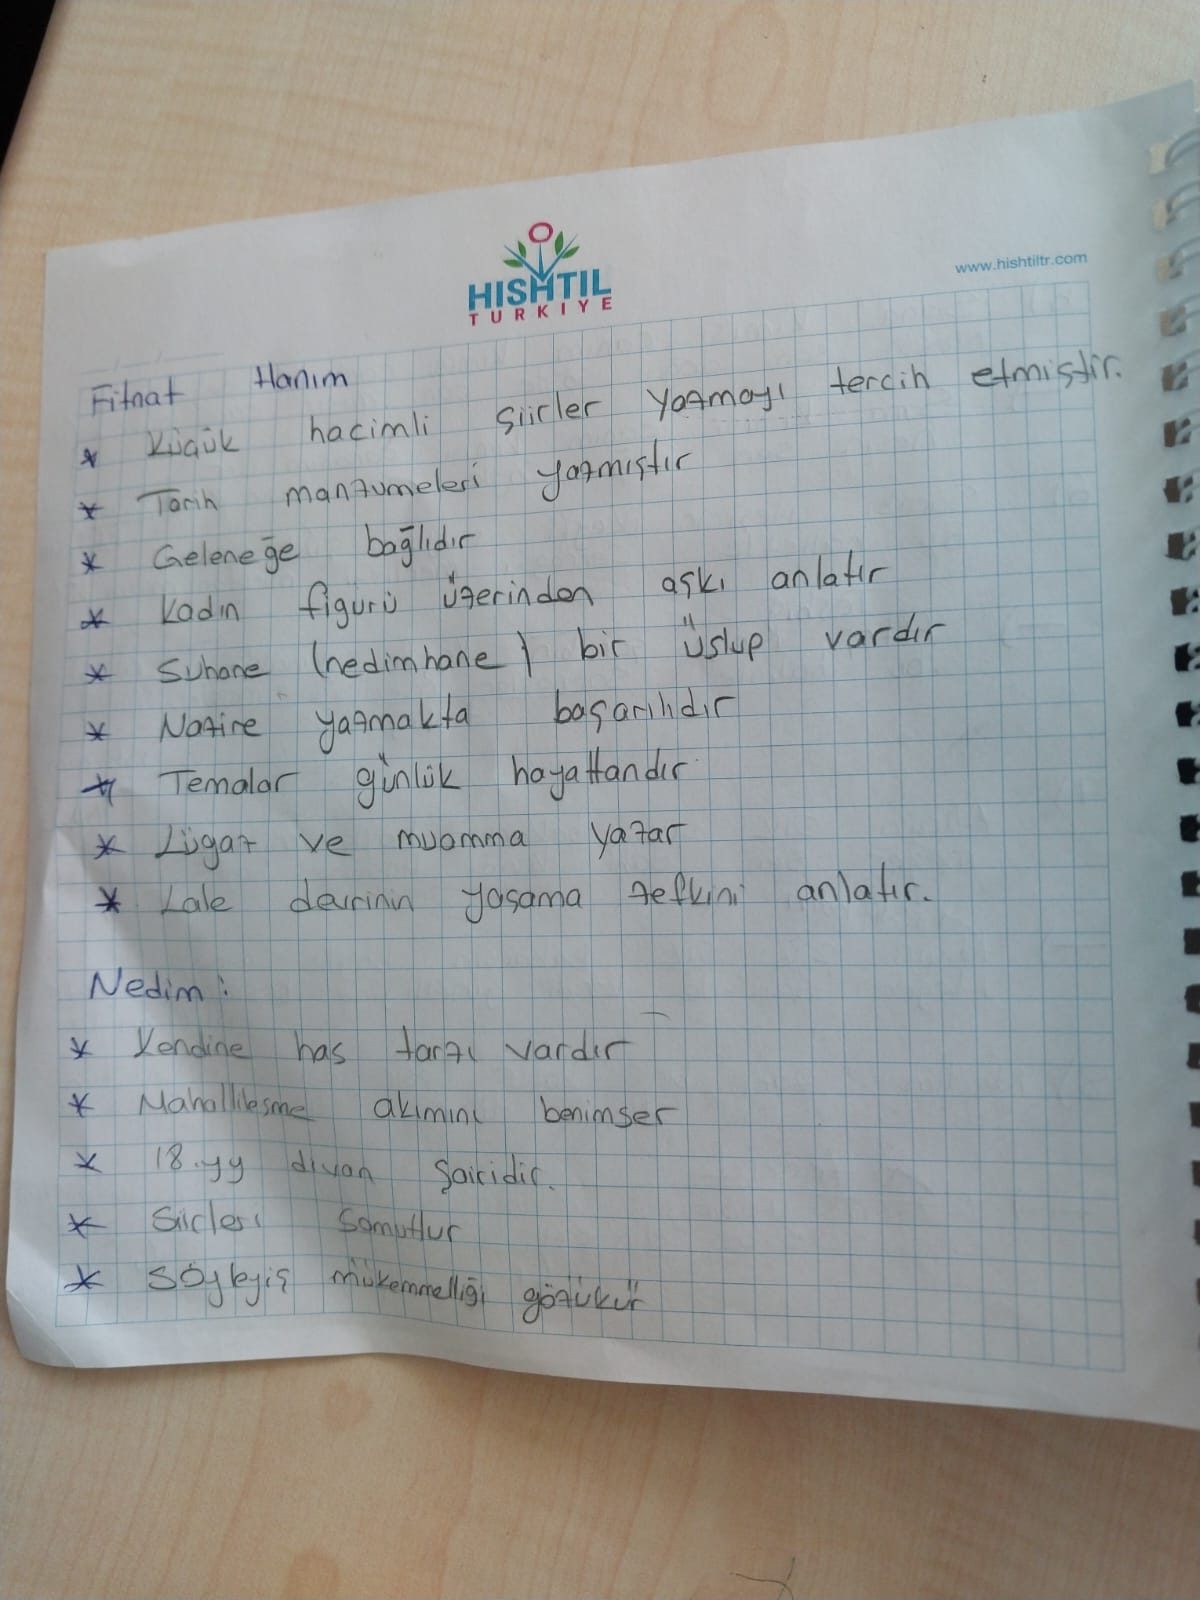 HISHTIL
TURKIYE
www.hishtiltr.com
Fitnat Hanım
* Küçük hacimli şiirler yazmayı tercih etmiştir.
* Tarih manzumeleri yazmıştır
* Geleneğe bağlıdır
* Kadın figürü üzerinden aşkı anlatır
* Suhane (nedimhane) bir üslup vardır
* Nazire yazmakta başarılıdır
* Temalar günlük hayattandır
* Lügaz ve muamma yazar
* Lale devrinin yaşama zefkini anlatır.
Nedim:
* Kendine has tarzı vardır
* Mahallileşme akımını benimser
* 18.yy divan şairidir.
* Siirleri somuttur
* Söyleyiş mükemmelliği gözükür